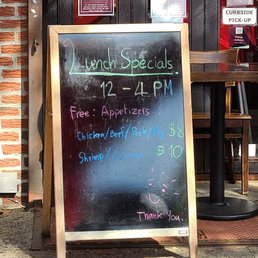 CURBSIDE
PICK-UP
Lunch Specials
12 - 4 PM
Free: Appetizers
Chicken/Beef/Pork/Veg $8
Shrimp/ $10
Thank You